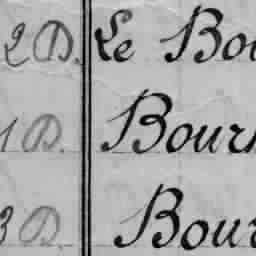 2 D. Le Bou
1 D. Bourn
3 D. Bour